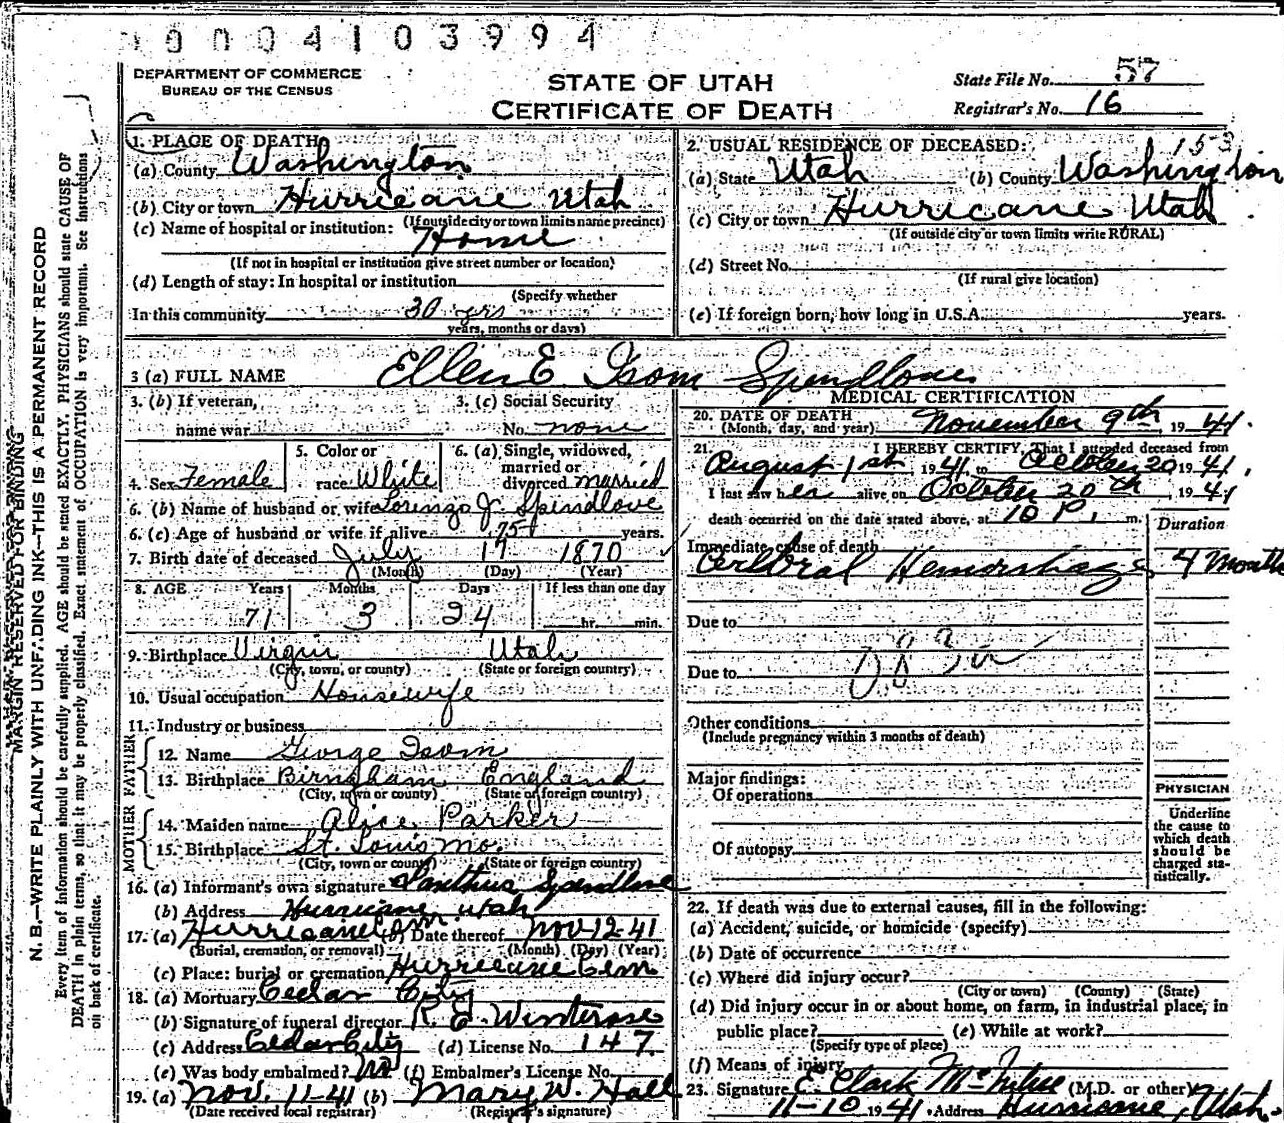 0004103994
DEPARTMENT OF COMMERCE
BUREAU OF THE CENSUS
STATE OF UTAH
CERTIFICATE OF DEATH
State File No. 57
Registrar's No. 16
1. PLACE OF DEATH
(a) County Washington
(b) City or town Hurricane Utah
(If outside city or town limits name precinct)
(c) Name of hospital or institution: Home
(If not in hospital or institution give street number or location)
(d) Length of stay: In hospital or institution
(Specify whether
In this community 30 yrs
years, months or days)
2. USUAL RESIDENCE OF DECEASED:
(a) State Utah (b) County Washington
(c) City or town Hurricane Utah
(If outside city or town limits write RURAL)
(d) Street No.
(If rural give location)
(e) If foreign born, how long in U.S.A. years.
3 (a) FULL NAME Ellen E Isom Spendlove
3. (b) If veteran, 3. (c) Social Security
name war No. none
4. Sex Female 5. Color or race White 6. (a) Single, widowed, married or divorced married
6. (b) Name of husband or wife Lorenzo J. Spendlove
6. (c) Age of husband or wife if alive 75 years.
7. Birth date of deceased July 17 1870
(Month) (Day) (Year)
8. AGE Years Months Days If less than one day
71 3 24 hr. min.
9. Birthplace Virgin Utah
(City, town, or county) (State or foreign country)
10. Usual occupation Housewife
11. Industry or business
FATHER
12. Name George Isom
13. Birthplace Birngham England
(City, town or county) (State or foreign country)
MOTHER
14. Maiden name Alice Parker
15. Birthplace St. Louis Mo.
(City, town or county) (State or foreign country)
16. (a) Informant's own signature Spendlove
(b) Address Hurricane Utah
17. (a) Hurricane (b) Date thereof Nov 12-41
(Burial, cremation, or removal) (Month) (Day) (Year)
(c) Place: burial or cremation Hurricane Cem
18. (a) Mortuary Cedar City
(b) Signature of funeral director R. E. Winterose
(c) Address Cedar City (d) License No. 147
(e) Was body embalmed? No (f) Embalmer's License No.
19. (a) Nov. 11-41 (b) Mary W. Hall
(Date received local registrar) (Registrar's signature)
MEDICAL CERTIFICATION
20. DATE OF DEATH
(Month, day, and year) November 9th, 1941.
21. I HEREBY CERTIFY, That I attended deceased from
August 1st, 1941, to October 20 1941,
I last saw her alive on October 20th 1941
death occurred on the date stated above, at 10 P. m.
Duration
Immediate cause of death
Cerebral Hemorrhage 4 Months
Due to
Due to
Other conditions
(Include pregnancy within 3 months of death)
Major findings:
Of operations
Of autopsy
PHYSICIAN
Underline
the cause to
which death
should be
charged sta-
tistically.
22. If death was due to external causes, fill in the following:
(a) Accident, suicide, or homicide (specify)
(b) Date of occurrence
(c) Where did injury occur?
(City or town) (County) (State)
(d) Did injury occur in or about home, on farm, in industrial place, in
public place? (e) While at work?
(Specify type of place)
(f) Means of injury
23. Signature E. Clark McIntire (M.D. or other)
11-10 1941. Address Hurricane, Utah.
MARGIN RESERVED FOR BINDING
N. B.—WRITE PLAINLY WITH UNFADING INK—THIS IS A PERMANENT RECORD
Every item of information should be carefully supplied. AGE should be stated EXACTLY. PHYSICIANS should state CAUSE OF
DEATH in plain terms, so that it may be properly classified. Exact statement of OCCUPATION is very important. See instructions
on back of certificate.